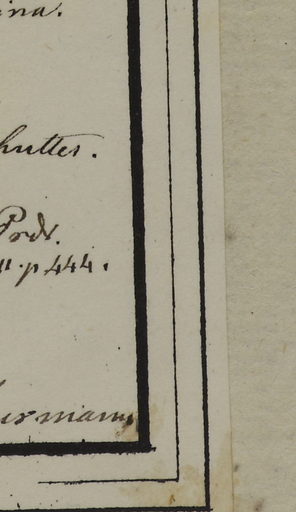 ina.
hutter.
Prdr.
11. p. 444.
ermann